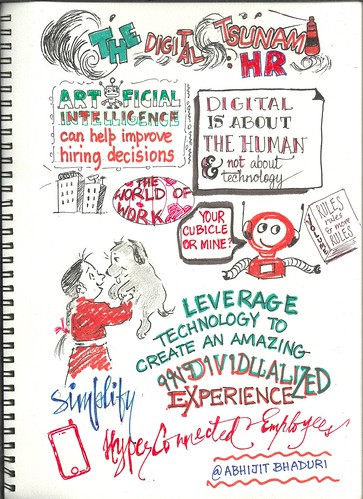 THE DIGITAL TSUNAMI
: HR
ARTIFICIAL
INTELLIGENCE
can help improve
hiring decisions
DIGITAL
IS ABOUT
THE HUMAN
& not about
technology
THE
WORLD OF
WORK
YOUR
CUBICLE
OR MINE?
VOLUME 1
RULES
rules
& more
RULES
LEVERAGE
TECHNOLOGY TO
CREATE AN AMAZING
INDIVIDUALIZED
EXPERIENCE
Simplify
HyperConnected Employees
@ABHIJIT BHADURI